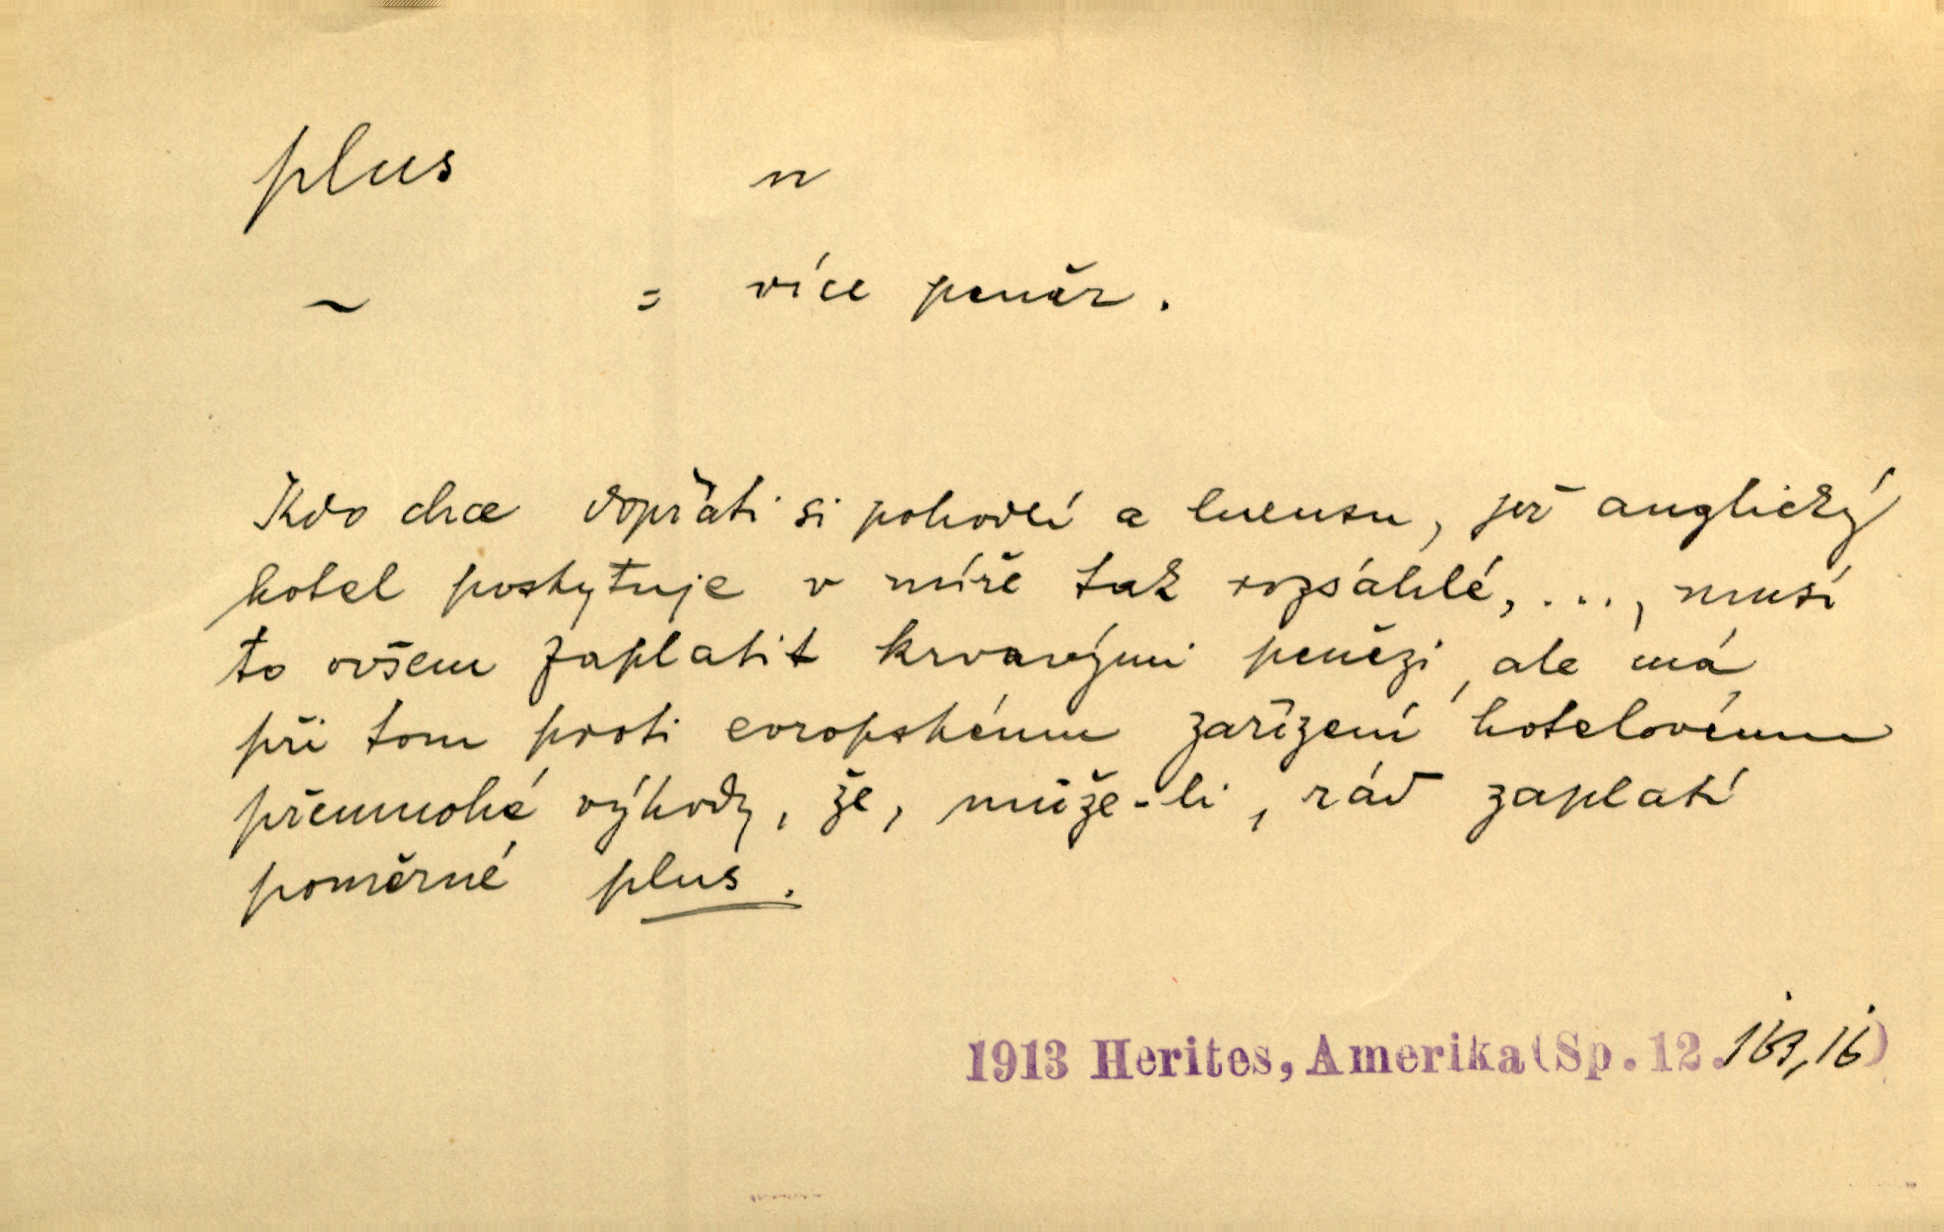 plus n
~ = více peněz.
Kdo chce dopřáti si pohodlí a luxusu, jež anglický
hotel poskytuje v míře tak rozsáhlé, ..., musí
to ovšem zaplatit krvavými penězi, ale má
při tom proti evropskému zařízení hotelovému
přemnohé výhody, že, může-li, rád zaplatí
poměrné plus.
1913 Herites, Amerika (Sp. 12.